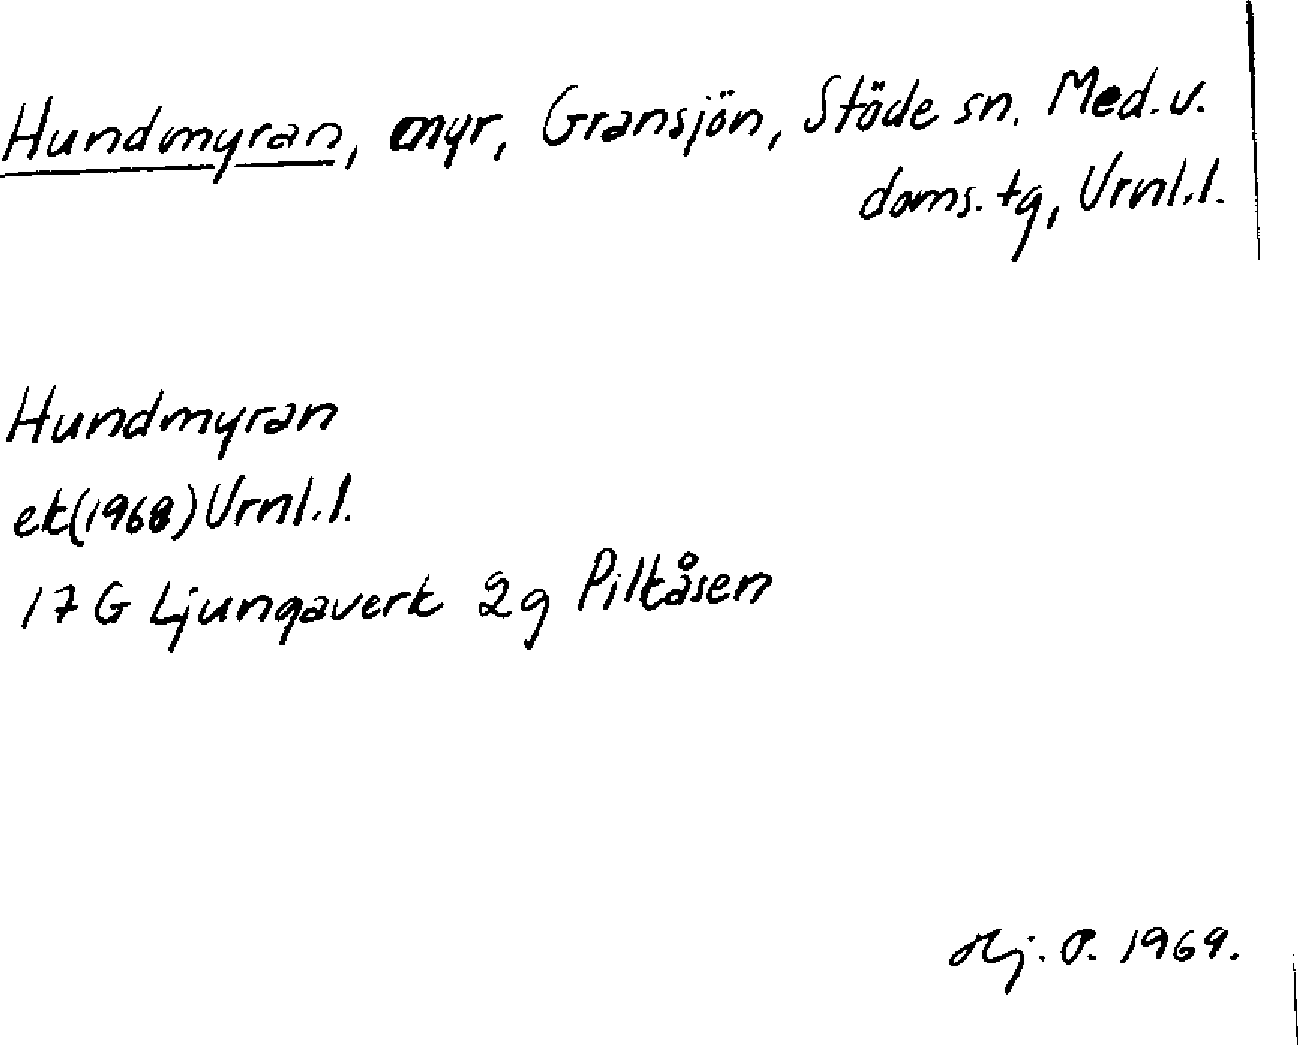 Hundmyran, myr, Gransjön, Stöde sn. Med. v.
doms. tg, Vrnl. l.
Hundmyran
ek (1968) Vrnl. l.
17 G Ljungaverk 2g Pilkåsen
Hj. P. 1969.